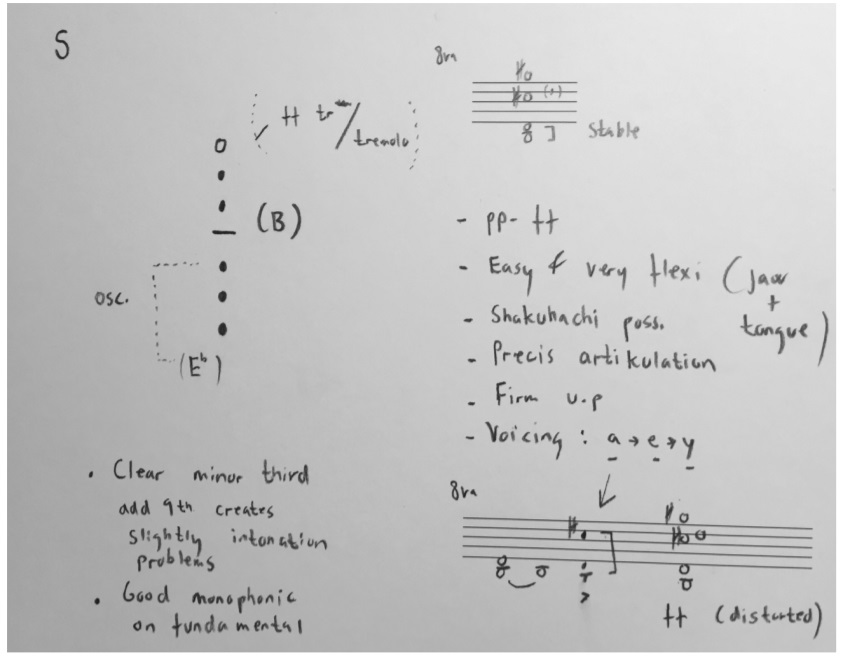 S
ff tr/tremolo
(B)
osc.
(Eb)
• Clear minor third
add 9th creates
slightly intonation
problems
• Good monophonic
on fundamental
8va
Stable
- pp - ff
- Easy & very flexi (jaw
+
tongue)
- Shakuhachi poss.
- Precis artikulation
- Firm u.p
- Voicing : a → e → y
8va
ff (distorted)